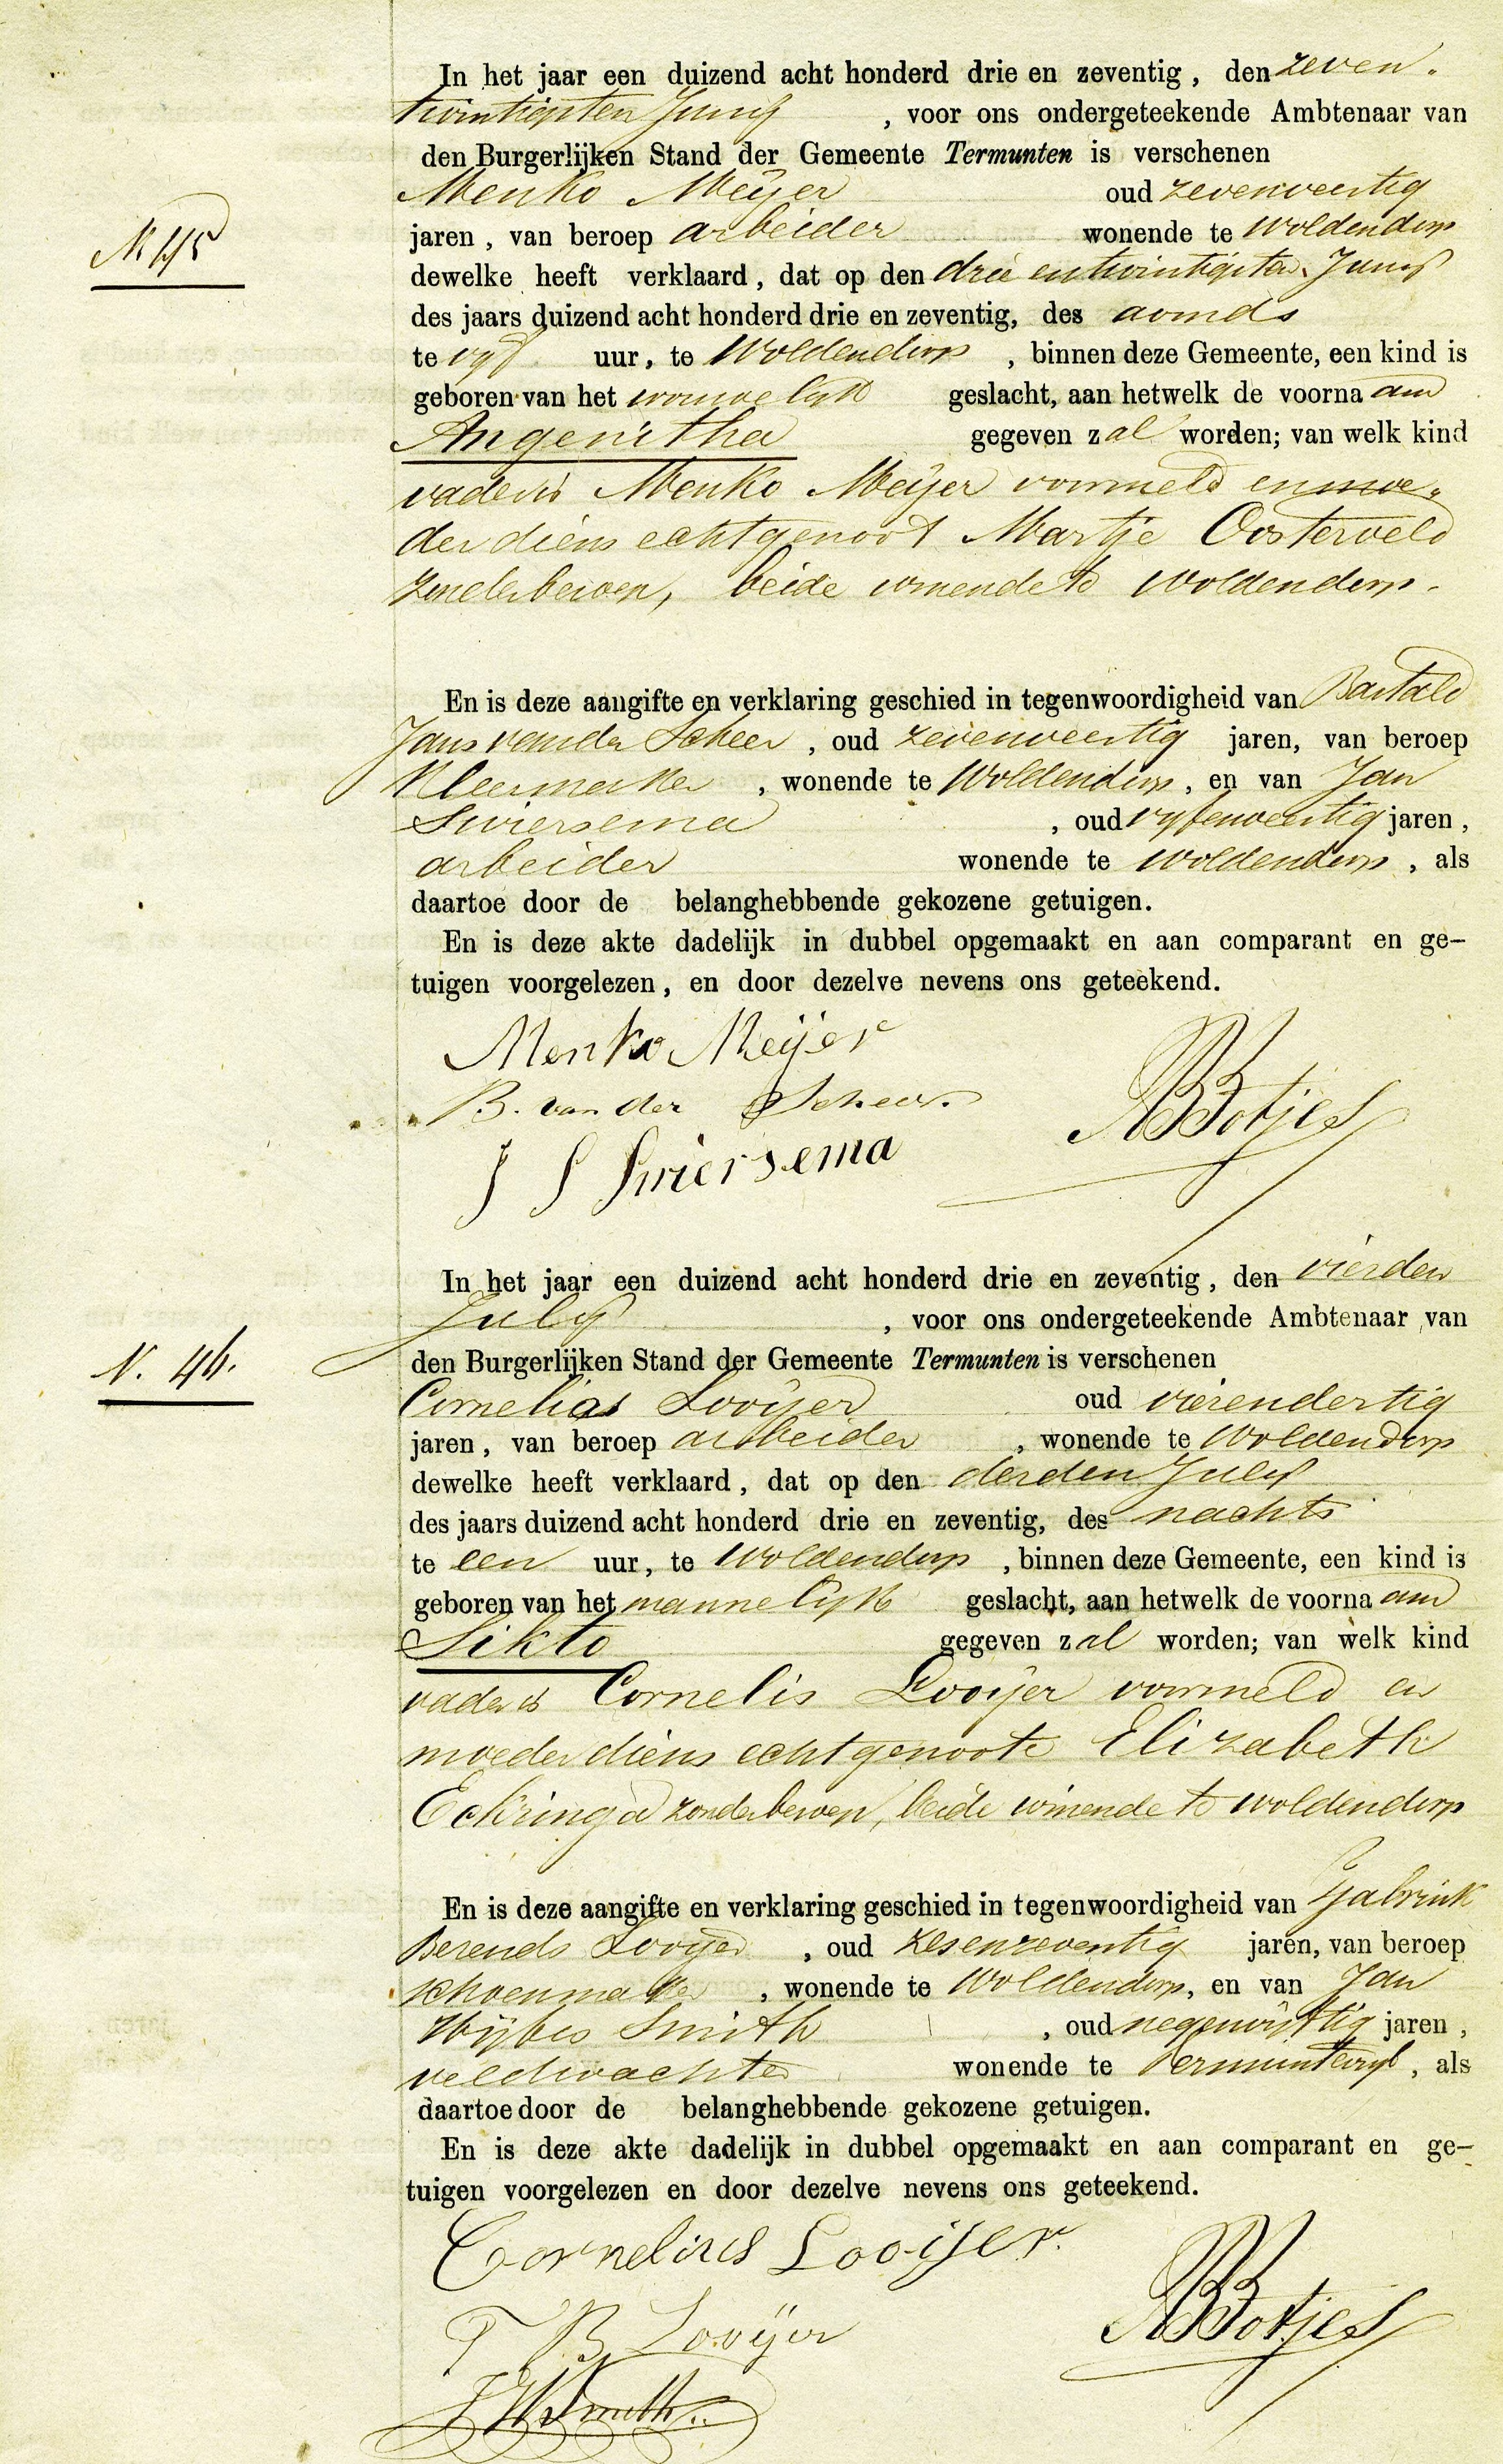 In het jaar een duizend acht honderd drie en zeventig, den zeven-
twintigsten Junij , voor ons ondergeteekende Ambtenaar van
den Burgerlijken Stand der Gemeente Termunten is verschenen
Menko Meijer oud zevenveertig
N 45
jaren, van beroep arbeider wonende te Woldendorp
dewelke heeft verklaard, dat op den drie en twintigsten Junij
des jaars duizend acht honderd drie en zeventig, des avonds
te vijf uur, te Woldendorp , binnen deze Gemeente, een kind is
geboren van het vrouwelijk geslacht, aan hetwelk de voornaam
Angenitha gegeven zal worden; van welk kind
vader is Menko Meijer voormeld en moe-
der diens echtgenoot Martje Oosterveld
zonder beroep, beide wonende te Woldendorp.
En is deze aangifte en verklaring geschied in tegenwoordigheid van Bartald
Jans van der Scheer , oud zevenveertig jaren, van beroep
Kleermaker , wonende te Woldendorp, en van Jan
Swiersema , oud vijfenveertig jaren,
arbeider wonende te Woldendorp, als
daartoe door de belanghebbende gekozene getuigen.
En is deze akte dadelijk in dubbel opgemaakt en aan comparant en ge-
tuigen voorgelezen, en door dezelve nevens ons geteekend.
Menko Meijer
B. van der Scheer.
Botjes
J S Swiersema
In het jaar een duizend acht honderd drie en zeventig, den vierden
July , voor ons ondergeteekende Ambtenaar van
N. 46.
den Burgerlijken Stand der Gemeente Termunten is verschenen
Cornelias Looijer oud vierendertig
jaren, van beroep arbeider , wonende te Woldendorp
dewelke heeft verklaard, dat op den derden July
des jaars duizend acht honderd drie en zeventig, des nachts
te een uur, te Woldendorp , binnen deze Gemeente, een kind is
geboren van het mannelijk geslacht, aan hetwelk de voornaam
Sikto gegeven zal worden; van welk kind
vader is Cornelis Looijer voormeld en
moeder diens echtgenoote Elizabeth
Eckringa zonder beroep, beide wonende te Woldendorp
En is deze aangifte en verklaring geschied in tegenwoordigheid van
Berends Looijer , oud zesenzeventig jaren, van beroep
schoenmaker , wonende te Woldendorp, en van Jan
Wijbes Smith , oud negenvijftig jaren,
veldwachter wonende te Termunterzijl, als
daartoe door de belanghebbende gekozene getuigen.
En is deze akte dadelijk in dubbel opgemaakt en aan comparant en ge-
tuigen voorgelezen en door dezelve nevens ons geteekend.
Cornelius Looijer.
T B Looijer
Botjes
J W Smith.